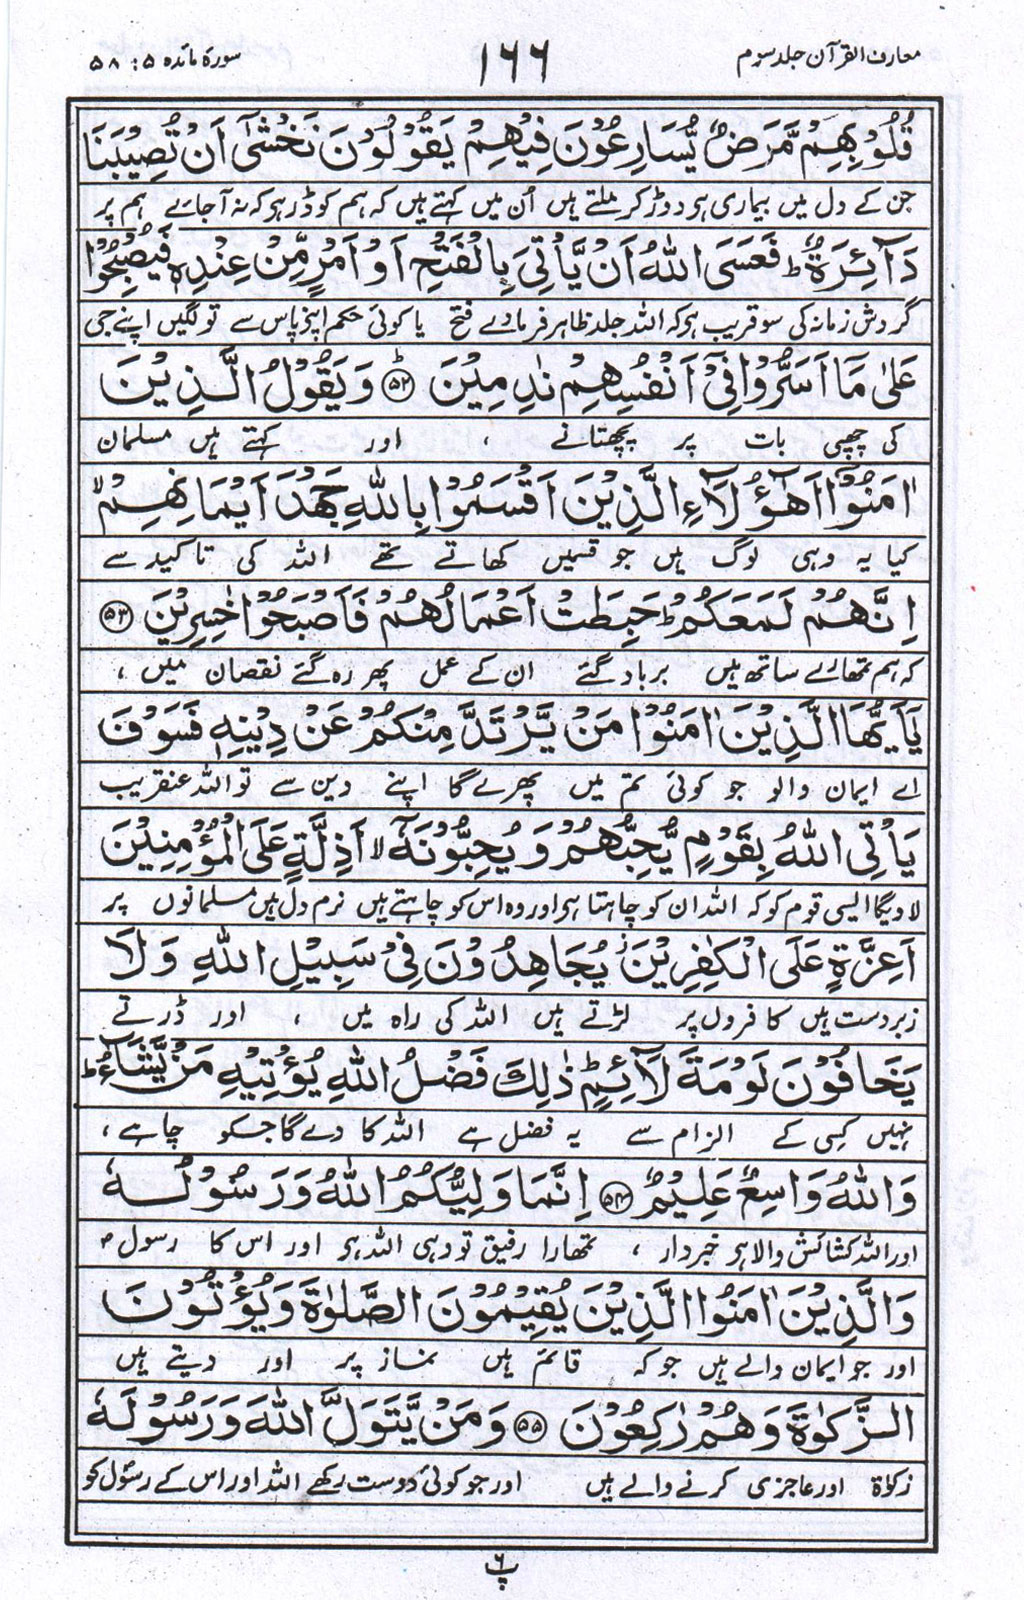 معارف القرآن جلد سوم ۱۶۶ سورۃ مائدہ ۵ : ۵۸
قُلُوْبِهِمْ مَّرَضٌ يُّسَارِعُوْنَ فِيْهِمْ يَقُوْلُوْنَ نَخْشٰٓى اَنْ تُصِيْبَنَا
جن کے دل میں بیماری ہے دوڑ کر ملتے ہیں اُن میں کہتے ہیں کہ ہم کو ڈر ہے کہ نہ آجائے ہم پر
دَآئِرَةٌ ؕ فَعَسَى اللّٰهُ اَنْ يَّاْتِىَ بِالْفَتْحِ اَوْ اَمْرٍ مِّنْ عِنْدِهٖ فَيُصْبِحُوْا
گردش زمانہ کی سو قریب ہے کہ اللہ جلد ظاہر فرمادے فتح یا کوئی حکم اپنے پاس سے تو لگیں اپنے جی
عَلٰى مَا اَسَرُّوْا فِىْٓ اَنْفُسِهِمْ نٰدِمِيْنَ ؕ ﴿۵۲﴾ وَيَقُوْلُ الَّذِيْنَ
کی چھپی بات پر پچھتانے ، اور کہتے ہیں مسلمان
اٰمَنُوْٓا اَهٰٓؤُلَآءِ الَّذِيْنَ اَقْسَمُوْا بِاللّٰهِ جَهْدَ اَيْمَانِهِمْ ۙ
کیا یہ وہی لوگ ہیں جو قسمیں کھاتے تھے اللہ کی تاکید سے
اِنَّهُمْ لَمَعَكُمْ ؕ حَبِطَتْ اَعْمَالُهُمْ فَاَصْبَحُوْا خٰسِرِيْنَ ﴿۵۳﴾
کہ ہم تمھارے ساتھ ہیں برباد گئے ان کے عمل پھر رہ گئے نقصان میں ،
يٰٓاَيُّهَا الَّذِيْنَ اٰمَنُوْا مَنْ يَّرْتَدَّ مِنْكُمْ عَنْ دِيْنِهٖ فَسَوْفَ
اے ایمان والو جو کوئی تم میں پھرے گا اپنے دین سے تو اللہ عنقریب
يَاْتِى اللّٰهُ بِقَوْمٍ يُّحِبُّهُمْ وَيُحِبُّوْنَهٗٓ ۙ اَذِلَّةٍ عَلَى الْمُؤْمِنِيْنَ
لاویگا ایسی قوم کو کہ اللہ ان کو چاہتا ہے اور وہ اس کو چاہتے ہیں نرم دل ہیں مسلمانوں پر
اَعِزَّةٍ عَلَى الْكٰفِرِيْنَ ؗ يُجَاهِدُوْنَ فِىْ سَبِيْلِ اللّٰهِ وَلَا
زبردست ہیں کافروں پر لڑتے ہیں اللہ کی راہ میں ، اور ڈرتے
يَخَافُوْنَ لَوْمَةَ لَآئِمٍ ؕ ذٰلِكَ فَضْلُ اللّٰهِ يُؤْتِيْهِ مَنْ يَّشَآءُ ؕ
نہیں کسی کے الزام سے یہ فضل ہے اللہ کا دے گا جسکو چاہے ،
وَاللّٰهُ وَاسِعٌ عَلِيْمٌ ﴿۵۴﴾ اِنَّمَا وَلِيُّكُمُ اللّٰهُ وَرَسُوْلُهٗ
اور اللہ کشائش والا ہے خبردار ، تمھارا رفیق تو وہی اللہ ہے اور اس کا رسول
وَالَّذِيْنَ اٰمَنُوا الَّذِيْنَ يُقِيْمُوْنَ الصَّلٰوةَ وَيُؤْتُوْنَ
اور جو ایمان والے ہیں جو کہ قائم ہیں نماز پر اور دیتے ہیں
الزَّكٰوةَ وَهُمْ رٰكِعُوْنَ ﴿۵۵﴾ وَمَنْ يَّتَوَلَّ اللّٰهَ وَرَسُوْلَهٗ
زکوٰۃ اور عاجزی کرنے والے ہیں اور جو کوئی دوست رکھے اللہ اور اس کے رسول کو
پ۶